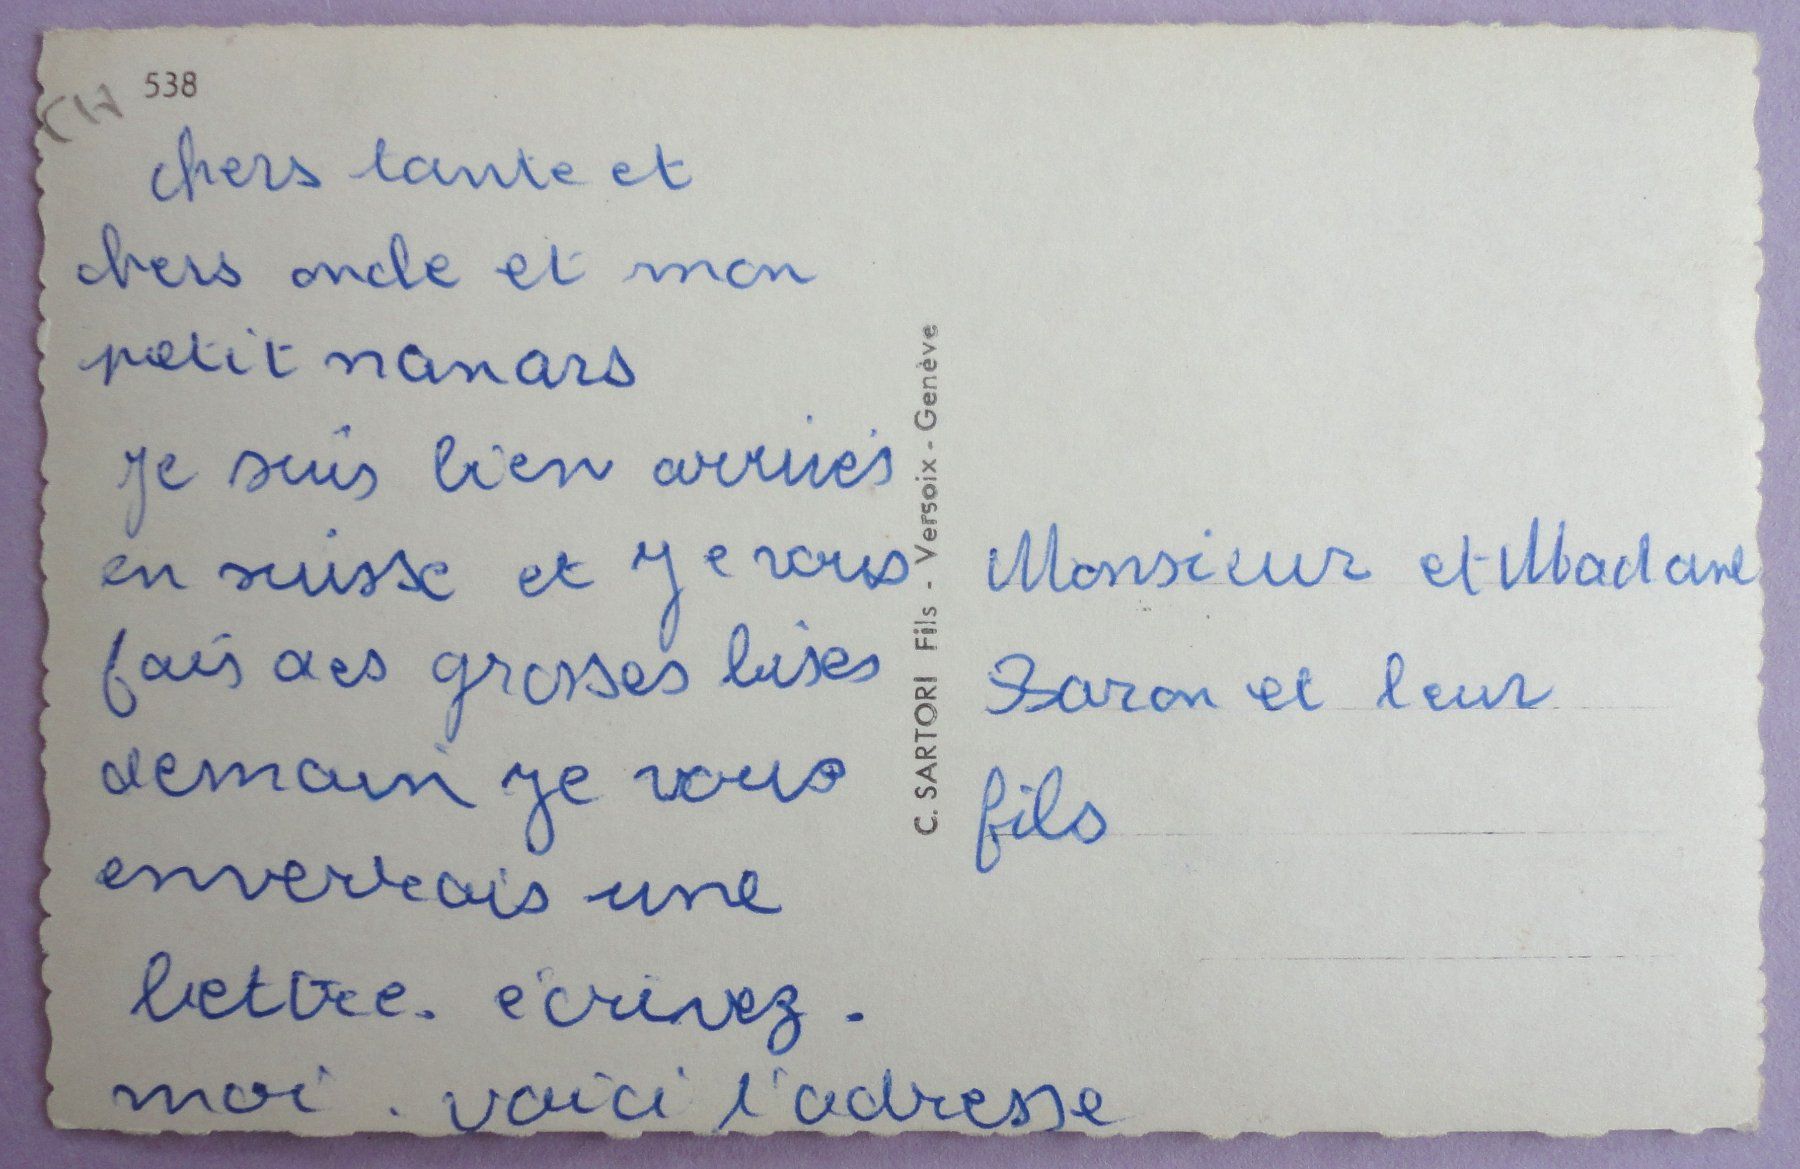 CH
538
chers tante et
chers oncle et mon
petit nanars
je suis bien arrivés
en suisse et je vous
fais des grosses bises
demain je vous
enverrais une
lettre. écrivez.
moi. voici l'adresse
C. SARTORI Fils - Versoix - Genève
Monsieur et Madame
Baron et leur
fils